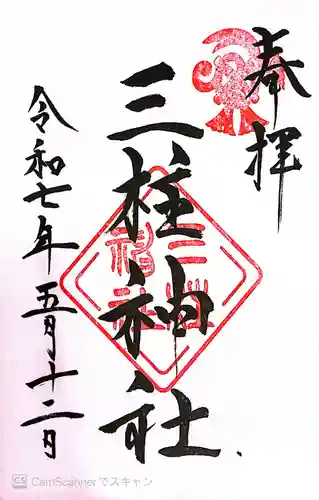 奉拝
三柱神社
令和七年五月十二日
CS CamScannerでスキャン